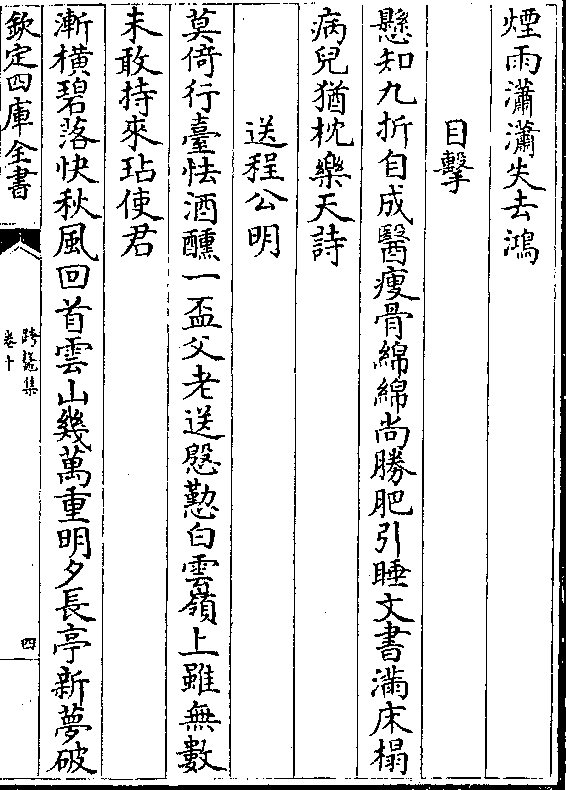 煙雨瀟瀟失去鴻
目擊
懸知九折自成醫瘦骨綿綿尚勝肥引睡文書滿床榻
病兒猶枕樂天詩
送程公明
莫倚行臺怯酒醺一盃父老送慇懃白雲嶺上雖無數
未敢持來玷使君
漸橫碧落快秋風回首雲山幾萬重明夕長亭新夢破
欽定四庫全書
跨鼇集
卷十
四